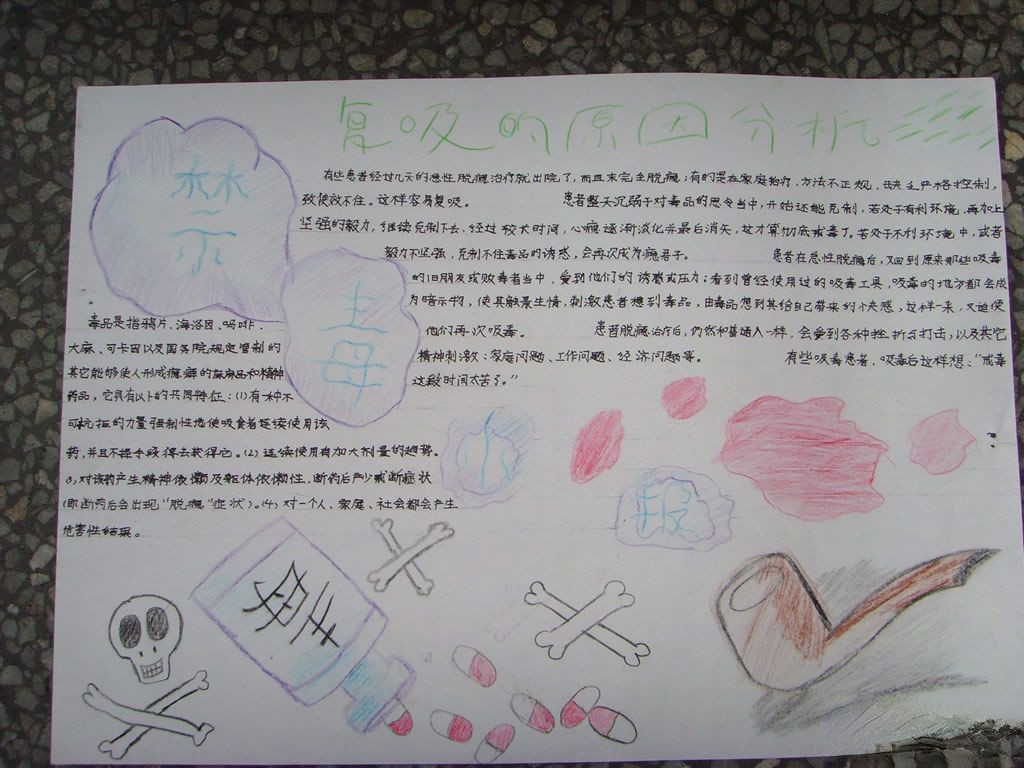 复吸的原因分析
禁
毒
小
报
有些患者经过几天的急性脱瘾治疗就出院了，而且未完全脱瘾；有的是在家庭治疗，方法不正规，缺乏严格控制，
致使效不佳。这样容易复吸。 患者整天沉弱于对毒品的思念当中，开始还能克制，若处于有利环境，再加上
坚强的毅力，继续克制下去，经过较长时间，心瘾逐渐淡化并最后消失，这才算彻底戒毒了。若处于不利环境中，或者
毅力不坚强，克制不住毒品的诱惑，会再次成为瘾君子。 患者在急性脱瘾后，又回到原来那些吸毒
的旧朋友或贩毒者当中，受到他们的诱惑或压力；看到曾经使用过的吸毒工具，吸毒的地方都会成
为暗示物，使其触景生情，刺激患者想到毒品，由毒品想到其给自己带来的快感，这样一来，又迫使
他们再次吸毒。 患者脱瘾治疗后，仍然和普通人一样，会受到各种挫折与打击，以及其它
精神刺激：家庭问题、工作问题、经济问题等。 有些吸毒患者，吸毒后这样想：“戒毒
这段时间太苦了。”
毒品是指鸦片、海洛因、吗啡、
大麻、可卡因以及国务院规定管制的
其它能够使人形成瘾癖的麻麻品和精神
药品，它具有以下的共同特征：(1)有一种不
可抗拒的力量强制性地使吸食者连续使用该
药，并且不择手段得去获得它。(2)连续使用有加大剂量的趋势。
(3)对该药产生精神依懒及躯体依懒性，断药后产少戒断症状
(即断药后会出现“脱瘾”症状)。(4)对一个人、家庭、社会都会产生
危害性结果。
毒